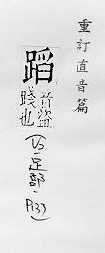 重訂直音篇
蹈
音盜
踐也
(V5-足部-P133)